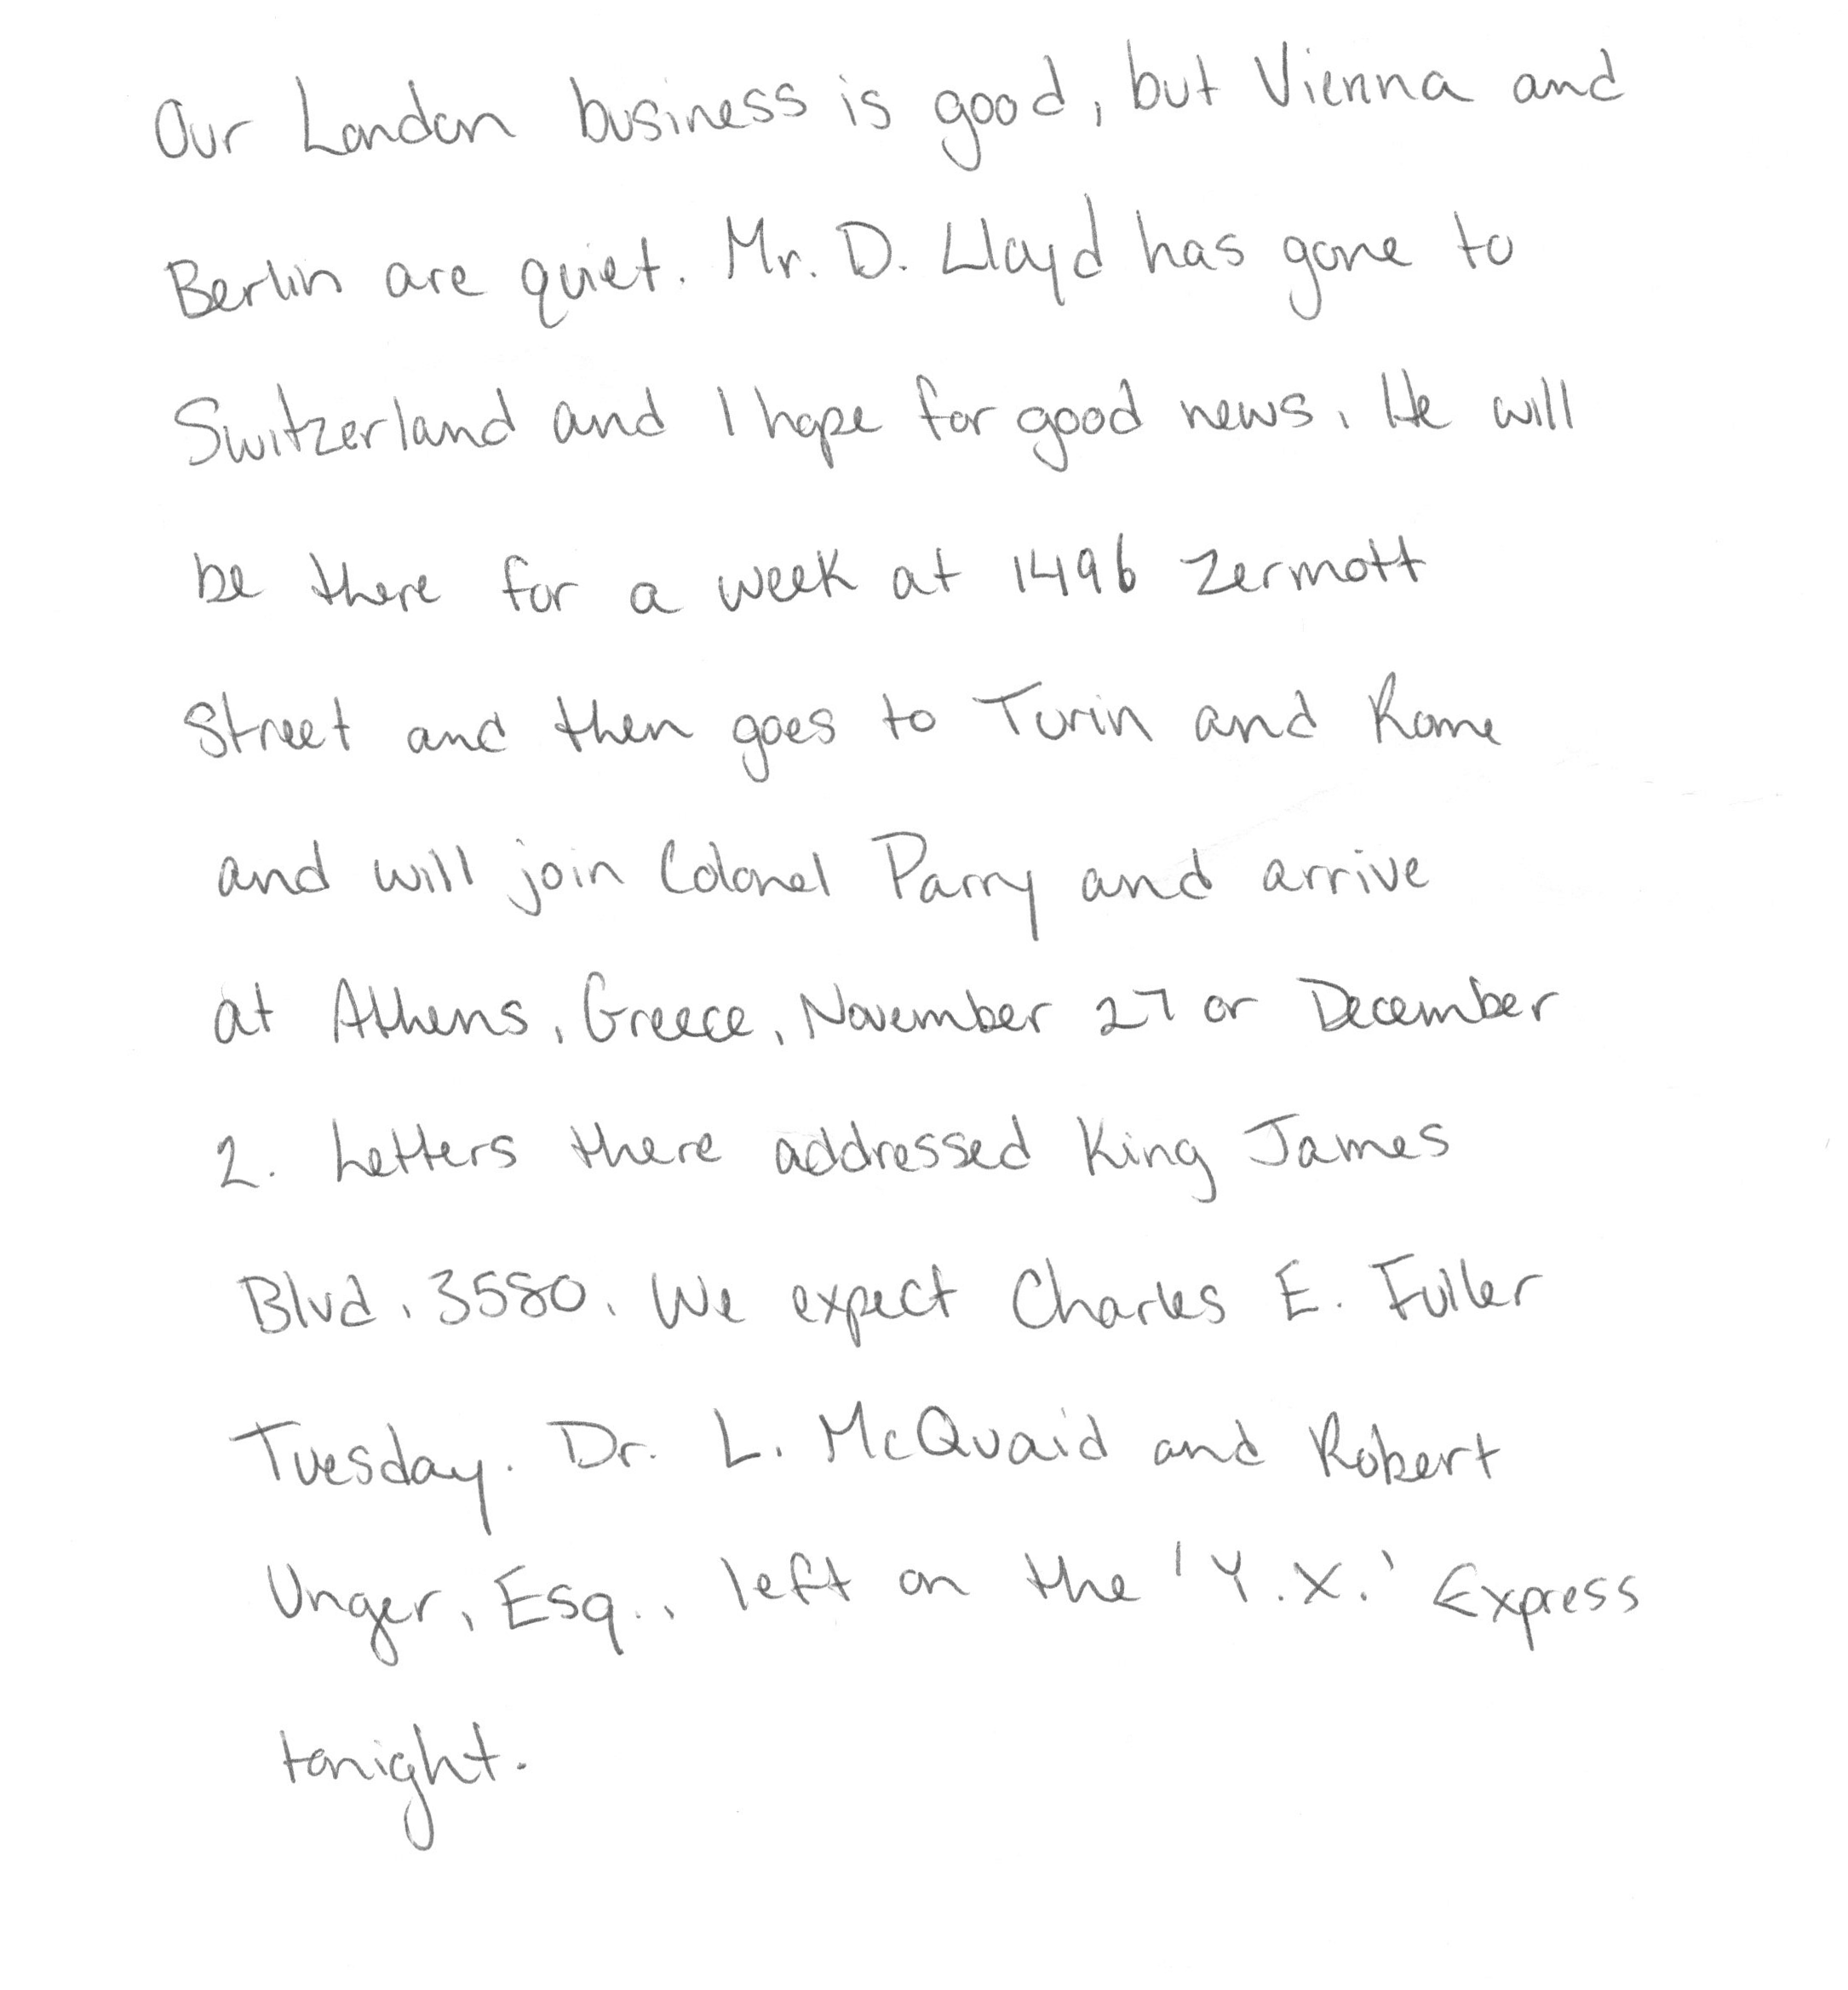 Our London business is good, but Vienna and
Berlin are quiet. Mr. D. Lloyd has gone to
Switzerland and I hope for good news. He will
be there for a week at 1496 Zermott
Street and then goes to Turin and Rome
and will join Colonel Parry and arrive
at Athens, Greece, November 27 or December
2. Letters there addressed King James
Blvd. 3580. We expect Charles E. Fuller
Tuesday. Dr. L. McQuaid and Robert
Unger, Esq., left on the 'Y.X.' Express
tonight.